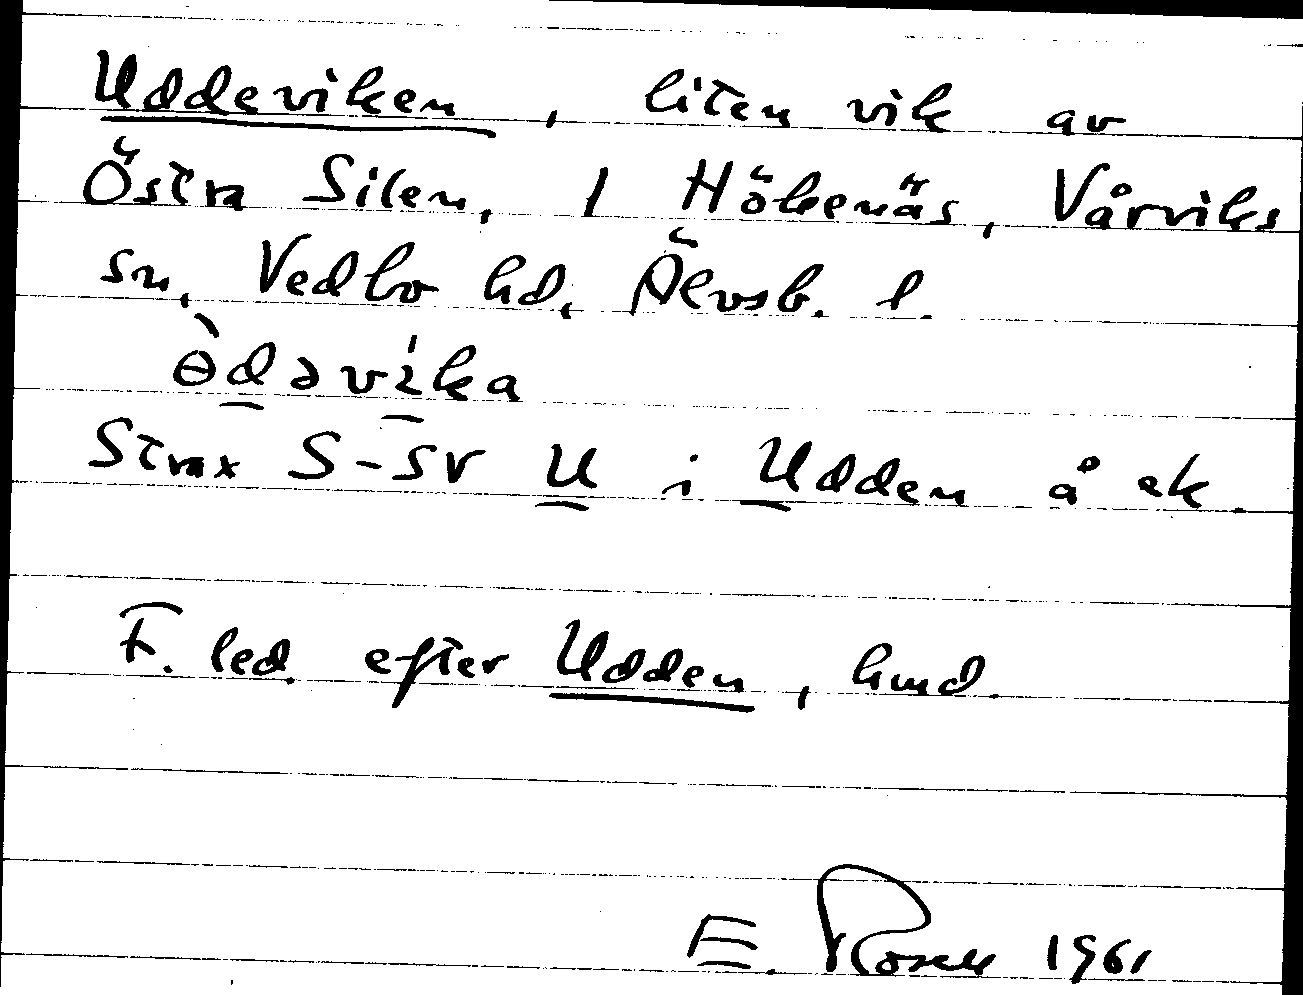 Uddeviken, liten vik av
Östra Silen, 1 Hökenäs, Vårviks
sn, Vedbo hd, Älvsb. l.
ɵ̀d̲əví̲ka
Strax S-SV U i Udden å ek.
F. led. efter Udden, hmd.
E. Rosell 1961